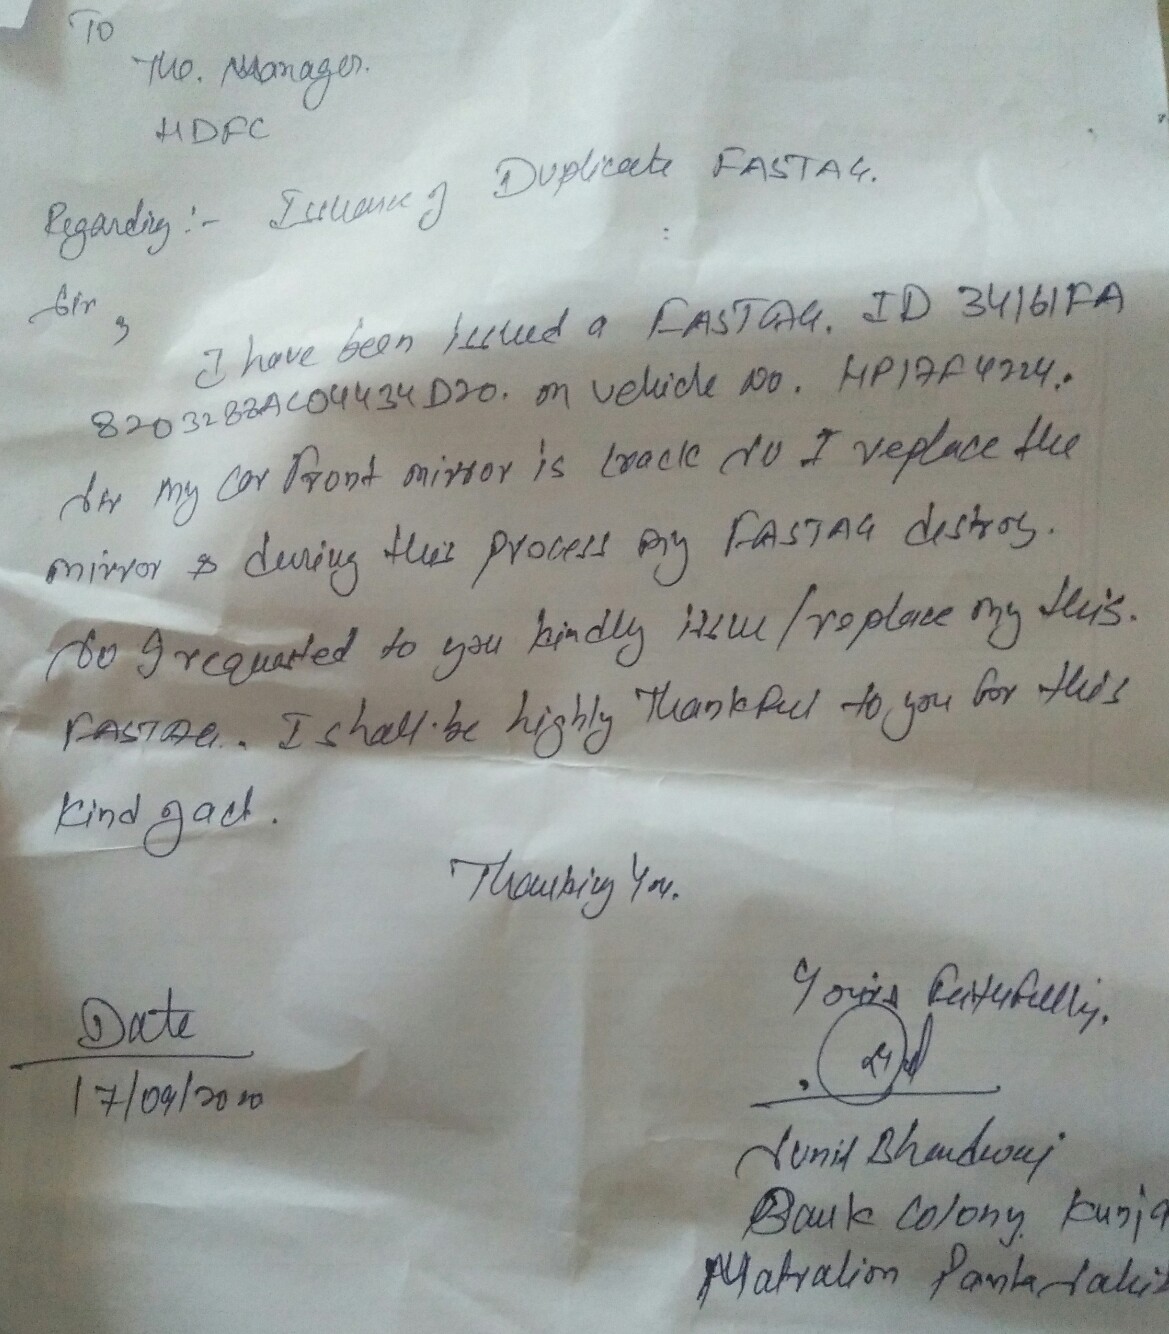 To
The. Manager.
HDFC
Regarding :- Issuance of Duplicate FASTAG.
Sir,
I have been issued a FASTAG. ID 34161FA
820328 AC04434D20. on vehicle no. HP17F4224.
Sir my car front mirror is crack so I replace the
mirror & during this process my FASTAG destroy.
So I requested to you kindly issue/replace my this.
FASTAG. I shall be highly Thankful to you for this
kind of act.
Thanking You.
Yours faithfully.
Date
17/09/2020
Sunil Bhardwaj
Bank Colony Kunja
Matralion Paonta Sahib